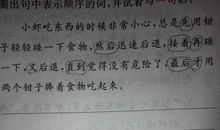 圈出句中表示顺序的词,并试着写一句话。
小虾吃东西的时候非常小心,总是先用钳
子轻轻碰一下食物,然后迅速后退,接着再碰
一下,又后退,直到觉得没有危险了,最后才用
两个钳子捧着食物吃起来。